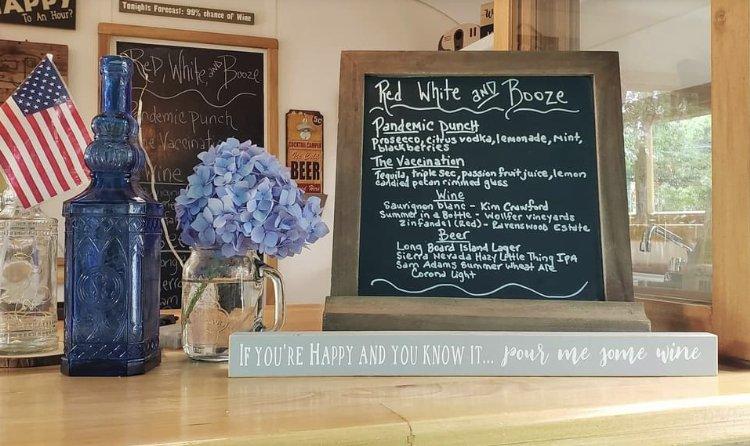 HAPPY
To An Hour?
Tonights Forecast: 99% chance of Wine
Red, White, and Booze
Pandemic Punch
The Vaccination
Wine
5¢
COCKTAIL CAMPER
BEER
Red White and Booze
Pandemic Punch
prosecco, citrus vodka, lemonade, mint,
blackberries
The Vaccination
Tequila, triple sec, passion fruit juice, lemon
candied pecan rimmed glass
Wine
Sauvignon blanc - Kim Crawford
Summer in a Bottle - Wölffer vineyards
Zinfandel (Red) - Ravenswood Estate
Beer
Long Board Island Lager
Sierra Nevada Hazy Little Thing IPA
Sam Adams Summer Wheat Ale
Corona Light
IF YOU'RE HAPPY AND YOU KNOW IT... pour me some wine